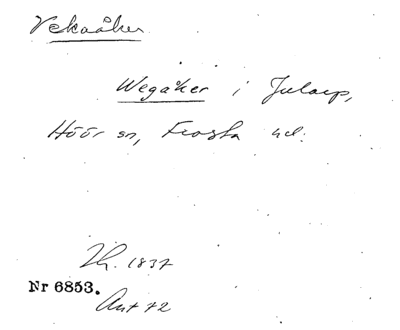 Vekaåker
Wegåker i Jularp,
Höör sn, Frosta hd.
Lh. 1837
Nr 6853.
Ant 72